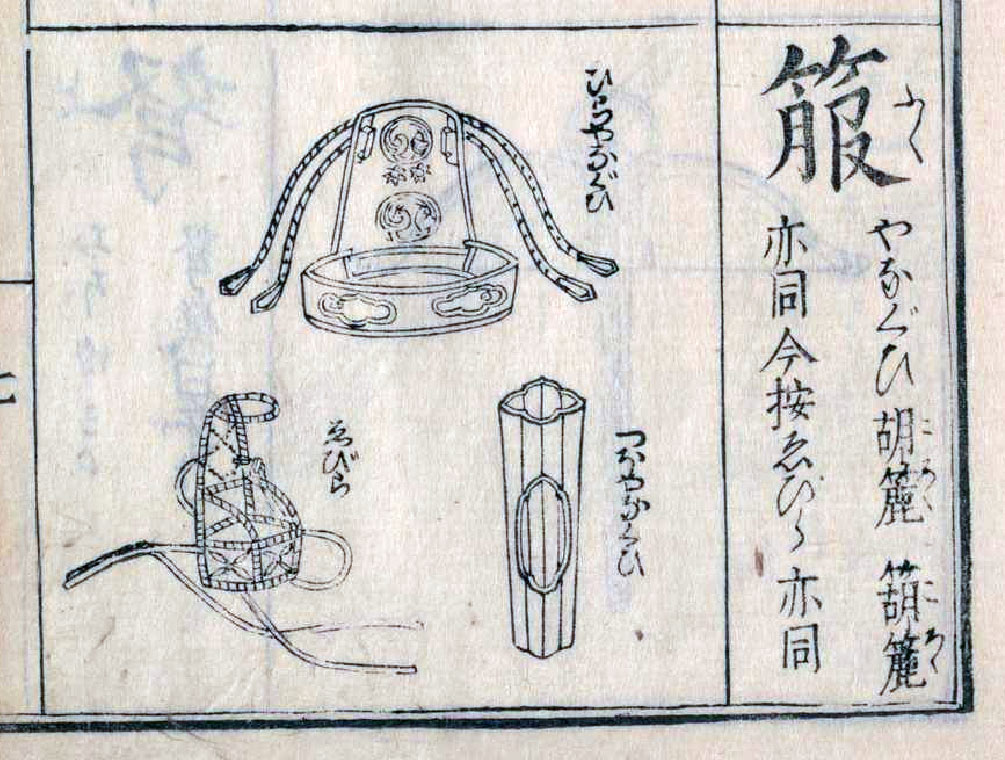 箙
ふく
やなぐひ 胡簏 箶簏
ころく ころく
亦同今按ゑびら亦同
ひらやなぐひ
つぼやなぐひ
ゑびら